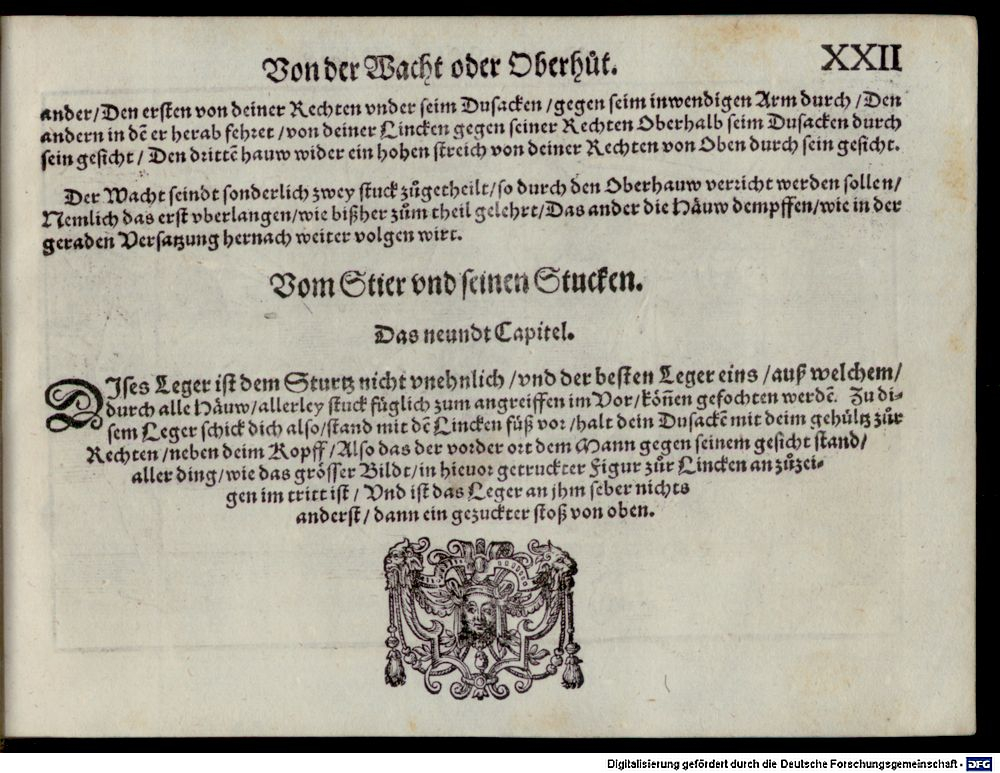 Von der Wacht oder Oberhůt.
XXII
ander/Den ersten von deiner Rechten vnder seim Dusacken/gegen seim inwendigen Arm durch/Den
andern in dē er herab fehret/von deiner Lincken gegen seiner Rechten Oberhalb seim Dusacken durch
sein gesicht/Den drittē hauw wider ein hohen streich von deiner Rechten von Oben durch sein gesicht.
Der Wacht seindt sonderlich zwey stuck zůgetheilt/so durch den Oberhauw verricht werden sollen/
Nemlich das erst vberlangen/wie bißher zům theil gelehrt/Das ander die Häuw dempffen/wie in der
geraden Versatzung hernach weiter volgen wirt.
Vom Stier vnd seinen Stucken.
Das neundt Capitel.
DIses Leger ist dem Sturtz nicht vnehnlich/vnd der besten Leger eins/auß welchem/
durch alle Häuw/allerley stuck füglich zum angreiffen im Vor/köñen gefochten werdē. Zu di-
sem Leger schick dich also/stand mit dē Lincken fůß vor/halt dein Dusackē mit deim gehültz zůr
Rechten/neben deim Kopff/Also das der vorder ort dem Mann gegen seinem gesicht stand/
aller ding/wie das grösser Bildt/in hievor getruckter Figur zůr Lincken an zůzei-
gen im tritt ist/Vnd ist das Leger an jhm selber nichts
anderst/dann ein gezuckter stoß von oben.
Digitalisierung gefördert durch die Deutsche Forschungsgemeinschaft - DFG